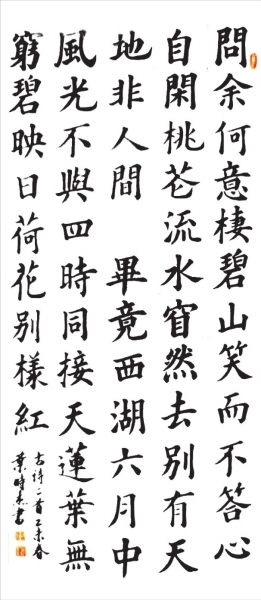 問余何意棲碧山笑而不答心
自閑桃花流水窅然去別有天
地非人間 畢竟西湖六月中
風光不與四時同接天蓮葉無
窮碧映日荷花别樣紅
古詩二首乙未春
葉時書